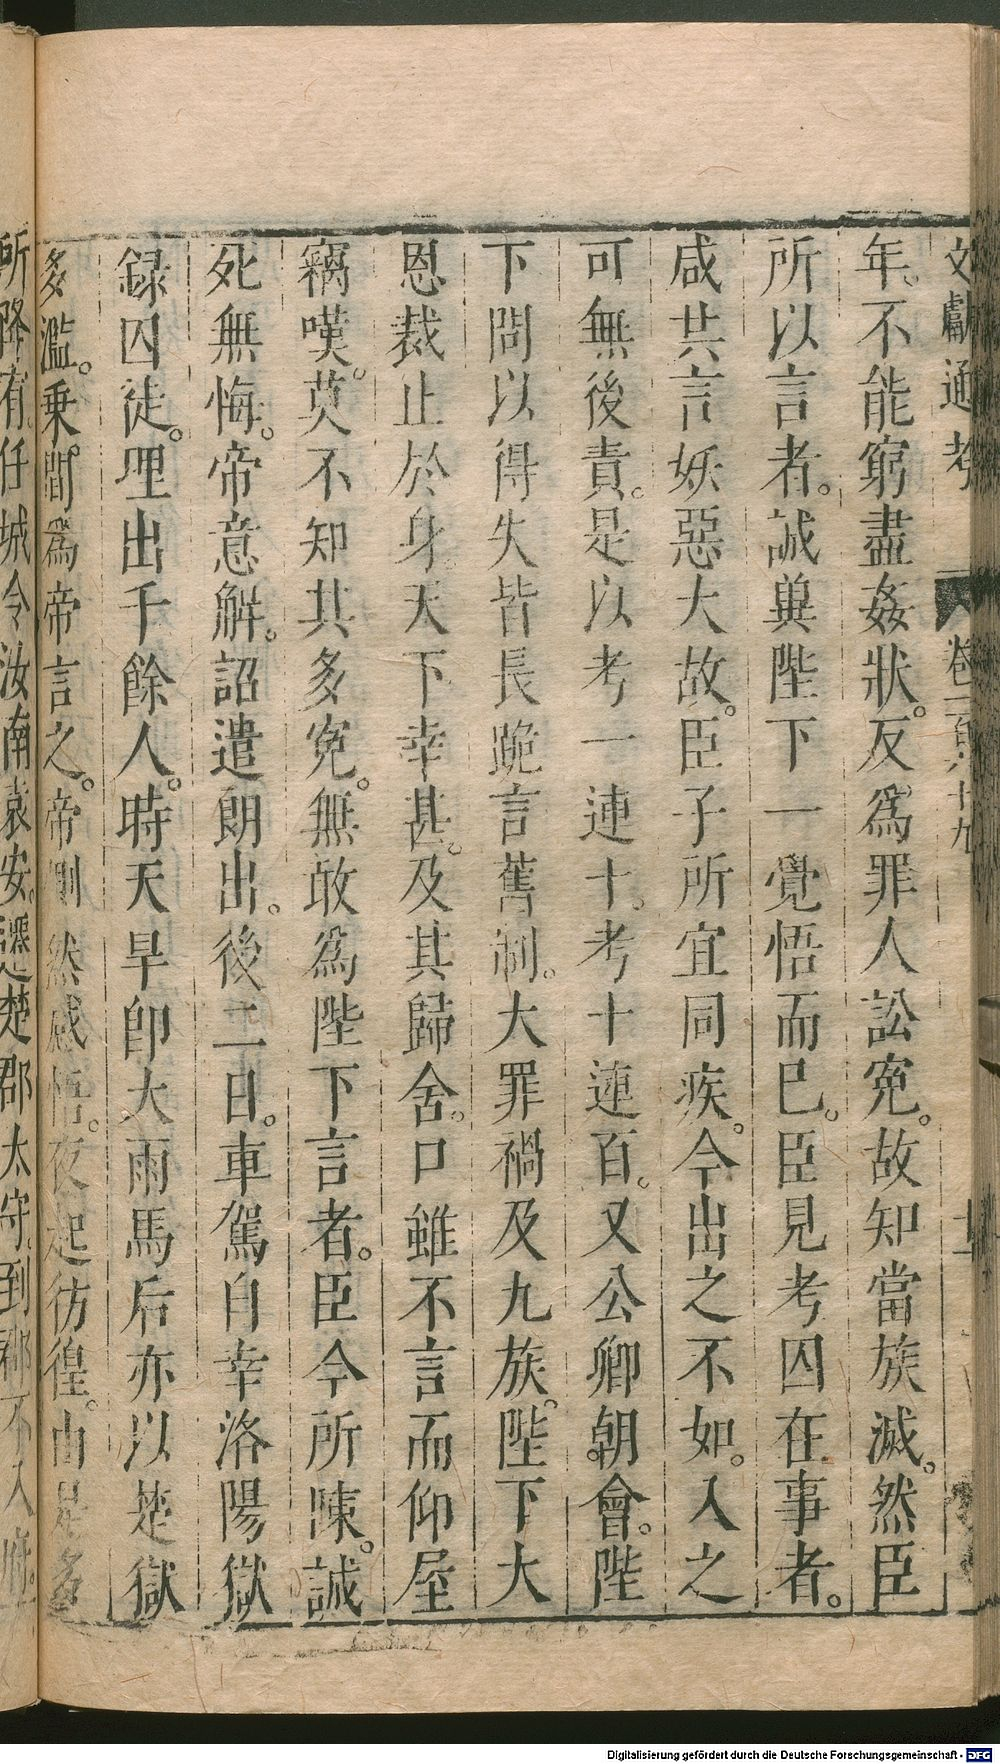 文獻通考
卷一百六十九
十一
年。不能窮盡姦狀。反爲罪人訟寃。故知當族滅。然臣
所以言者。誠兾陛下一覺悟而巳。臣見考囚在事者。
咸共言妖惡大故。臣子所宜同疾。今出之不如。入之
可無後責。是以考一連十。考十連百。又公卿朝會。陛
下問以得失皆長跪言舊制。大罪禍及九族。陛下大
恩裁止於身。天下幸甚。及其歸舍。口雖不言而仰屋
竊嘆。莫不知其多寃。無敢爲陛下言者。臣今所陳。誠
死無悔。帝意解。詔遣朗出。後二日。車駕自幸洛陽獄
録囚徒。理出千餘人。時天旱卽大雨馬后亦以楚獄
多濫。乗間爲帝言之。帝惻然感悟。夜起彷徨。由是多
所降有。任城令汝南袁安。遷楚郡太守。到郡不入府。
Digitalisierung gefördert durch die Deutsche Forschungsgemeinschaft - DFG